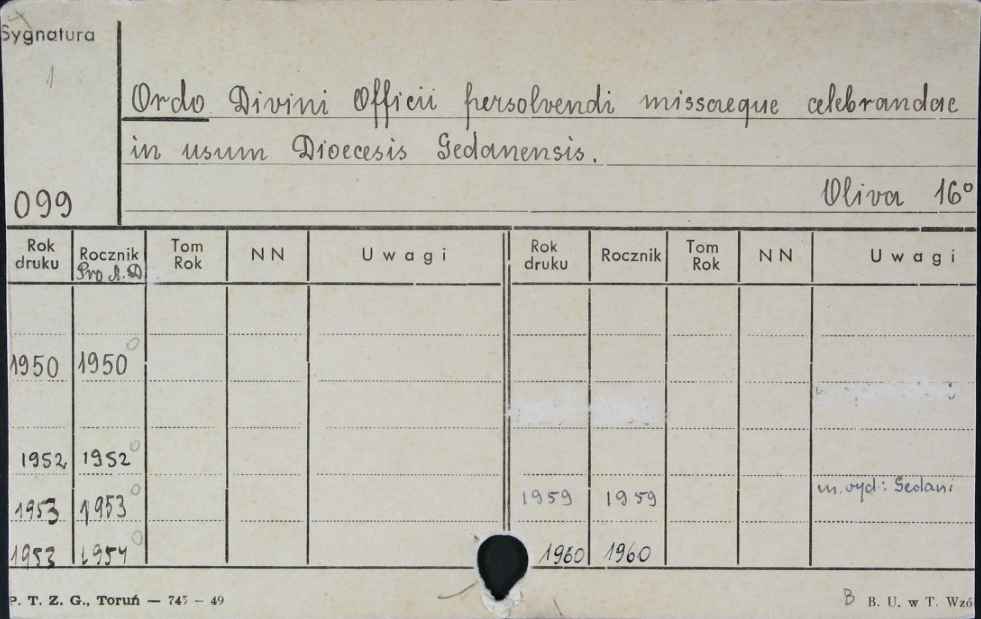 Sygnatura
1
Ordo Divini Officii persolvendi missaeque celebrandae
in usum Dioecesis Gedanensis.
Oliva 16°
099
Rok druku Rocznik Pro A.D Tom Rok NN Uwagi Rok druku Rocznik Tom Rok NN Uwagi
1950 1950
1952 1952
1953 1953 1959 1959 m. wyd: Gedani
1953 1954 1960 1960
P. T. Z. G., Toruń — 745 — 49
B B. U. w T. Wzó